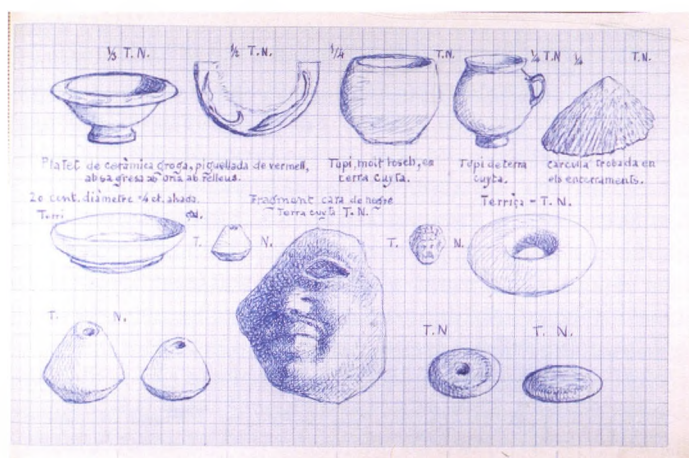 ⅓ T. N. ½ T. N. ¼ T. N. ¼ T. N. ¼ T. N.
Platet de ceràmica groga, piquellada de vermell,
ab sa gresa ab relleus.
Tupí, molt tosch, de
terra cuyta.
Tupí de terra
cuyta.
carculla trobada en
els enterraments.
20 cent. diàmetre
Fragment cara de
Terra cuyta T. N.
Terriça - T. N.
T. N.
T. N.
T. N.
T. N
T. N.